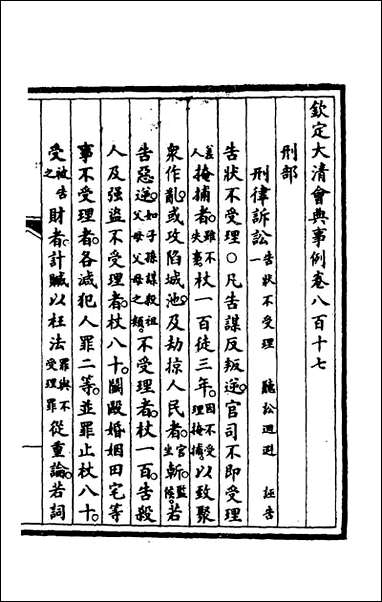 欽定大清會典事例卷八百十七
刑部
刑律訴訟一 告狀不受理 聽訟迴避 誣告
告狀不受理○凡告謀反叛逆。官司不即受理
差人掩捕者。雖不失事杖一百徒三年。因不受理掩捕。以致聚
衆作亂。或攻陷城池。及劫掠人民者。官坐斬。監候。若
告惡逆。如子孫謀殺祖父母父母之類。不受理者。杖一百。告殺
人及强盜不受理者。杖八十。鬬毆婚姻田宅等
事不受理者。各減犯人罪二等。並罪止杖八十。
受被告之財者。計贓以枉法罪與不受理罪從重論。若詞